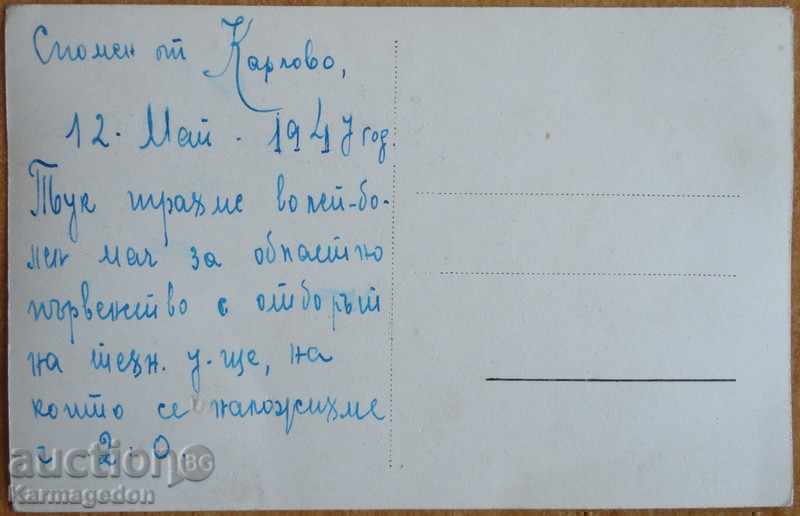 Спомен от Карлово,
12. Май. 1947 год.
Тук играхме волей-бо-
лен мач за областно
първенство с отборът
на техн. у-ще, на
който се наложихме
с 2:0.
auctionBG
Karmagedon